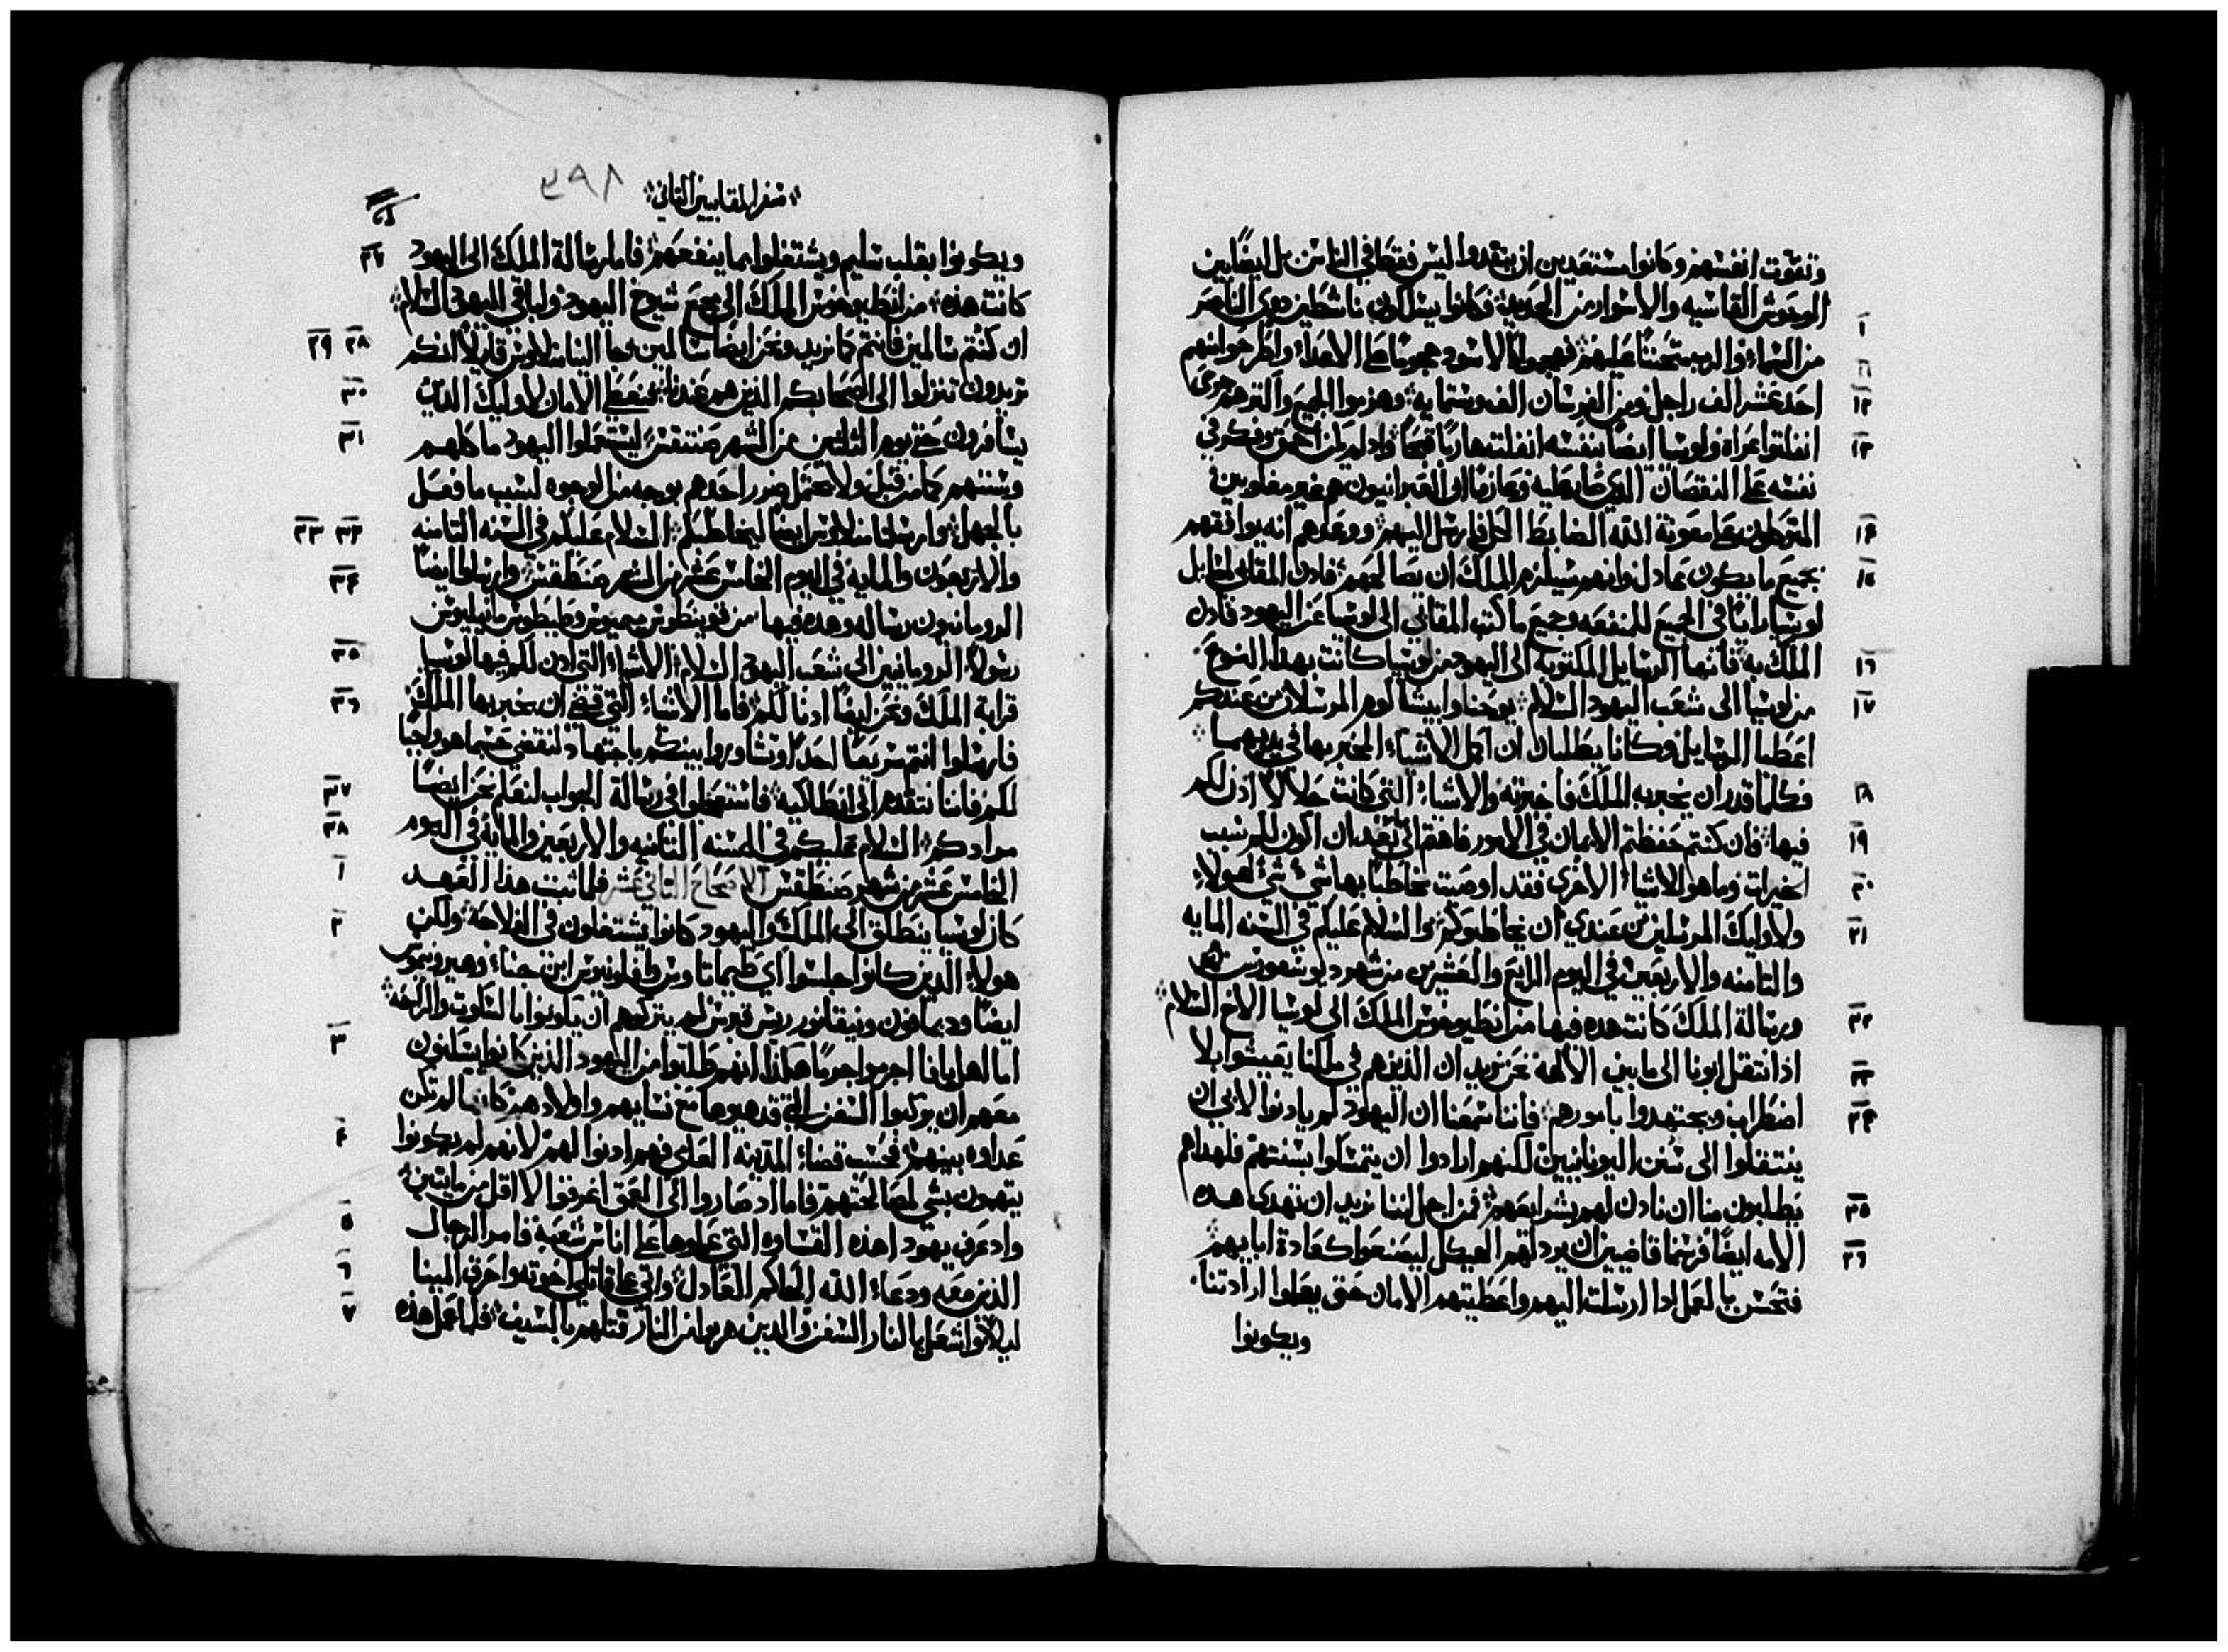 وتقوت انفسهم وكانوا مستعدين ان ينقدوا ليس فقط في الناس بل ايضًا بين
الوحوش القاسيه والاسوار من الحديد فكانوا يسلكون ناشطين ذوي الناصر
١٠
من السماء والرب متحننًا عليهم فهجموا كالاسود هجومًا على الاعداء واطرحوا منهم
١١
احد عشر الف راجل ومن الفرسان الف وستمايه وهزموا الجميع واكثرهم جرحى
١٢
انفلتوا عراه ولوسيا ايضًا بنفسه انفلت هاربًا قبحًا واد لم يكن احمق وفكر في
١٣
نفسه على النقصان الذي صار عليه وعارفًا ان العبرانيون هم غير مغلوبين
المتوكلون على معونة الله الضابط الكل فارسل اليهم ووعدهم انه يوافقهم
١٤
بجميع ما يكون عادل وانهم سيلزم الملك ان يصالحهم فادن المقابي لطلبايل
١٥
لوسيا راينا في الجميع للمنفعه وجميع ما كتب المقابي الى لوسيا عن اليهود فادن
الملك به فانها الرسايل المكتوبه الى اليهود من لوسيا كانت بهذا النوع
١٦
من لوسيا الى شعب اليهود السلام يوحنا وابيشالوم المرسلان من عندكم
١٧
اعطيا الرسايل وكانا يطلبان ان اكمل الاشياء المخبر بها في يديهما
فكلما قدر ان يخبر به الملك فاخبرته والاشياء التي كانت حلالًا اذن لكم
١٨
فيها فان كنتم حفظتم الايمان في الامور فاهتم الى بعد ان اكون لكم سبب
١٩
الخيرات وما هو الاشياء الاخرى فقد اوصيت مخاطبًا بها شيء شيء لهولاء
٢٠
ولاوليك المرسلين من عندي ان يخاطبوكم والسلام عليكم في السنه المايه
٢١
والتامنه والاربعين في اليوم الرابع والعشرين من شهر ديوسقورس
ورسالة الملك كانت هده فيها من انطيوخوس الملك الى لوسيا الاخ السلام
٢٢
اذ انتقل ابونا الى ما بين الالهه نحن نريد ان الذين هم في ملكنا يعيشوا بلا
٢٣
اضطراب ويجتهدوا بامورهم فاننا سمعنا ان اليهود لم يادنوا لابي ان
٢٤
ينتقلوا الى سنن اليونانيين لكنهم ارادوا ان يتمسكوا بسنتهم فلهدا هم
يطلبون منا ان نادن لهم بشرايعهم فمن اجل اننا نريد ان تهدى هده
٢٥
الامه ايضًا فرسمنا قاضيين ان يرد لهم الهيكل ليصنعوا كعادة ابايهم
٢٦
فتحسن بالعمل ادا ارسلت اليهم واعطيتهم الامان حتى يعلموا ارادتنا
ويكونوا
سفر المقابيين التاني
٢٩٨
ويكونوا بقلب سليم ويشتغلوا بما ينفعهم فاما رسالة الملك الى اليهود
٢٧
كانت هذه من انطيوخوس الملك الى مجمع شيوخ اليهود ولباقي اليهود السلام
ان كنتم سالمين فانتم كما نريد ونحن ايضًا سالمين جا الينا منلاوس قايلًا انكم
٢٨ ٢٩
تريدون تنزلوا الى اصحابكم الذين هم عندنا فنعطي الامان لاوليك الذين
٣٠
يسافرون حتى يوم التلتين من الشهر صنتقس ليستعملوا اليهود ماكلهم
٣١
وسننهم كما من قبل ولا يحتمل ضرر احدهم بوجه من الوجوه لسبب ما فعل
بالجهل وارسلنا منلاوس ايضًا ليخاطبكم السلام عليكم في السنه التامنه
٣٢ ٣٣
والاربعون والمايه في اليوم الخامس عشر من الشهر صنطقس وارسلوا ايضًا
٣٤
الرومانيون رساله وهده فيها من قوينطوس ميميوس وطيطوس مانيليوس
رسولا الرومانيين الى شعب اليهود السلام الاشياء التي ادن لكم فيها لوسيا
٣٥
قرابة الملك ونحن ايضًا ادنا لكم فاما الاشياء التي قضى ان يخبر بها الملك
٣٦
فارسلوا انتم سريعًا احدًا وتشاوروا بينكم باجتهاد لنقضي حسبما هو واجبًا
لكم فاننا نتقدم الى انطاكيه فاستعجلوا في رسالة الجواب لنعلم نحن ايضًا
٣٧
مرادكم السلام عليكم في السنه التامنه والاربعين والمايه في اليوم
٣٨
الخامس عشر من شهر صنطقس الاصحاح الثاني عشر فلما تبت هذا العهد
١
كان لوسيا ينطلق الى الملك واليهود كانوا يشتغلون في الفلاحه ولكن
٢
هولاء الذين كانوا جلسوا اي طيماتاوس وافلونيوس ابن جناء وهيرونيموس
ايضًا وديمافون ونيقانور ريس قبرس لم يتركوهم ان يكونوا بالسكوت والراحه
اما اهل يافا اجرموا جرمًا هكذا انهم طلبوا من اليهود الذين كانوا يسكنون
٣
معهم ان يركبوا السفن التي قدموها مع نسايهم واولادهم كانما لم تكن
عداوه بينهم فحسب قضاء المدينه العام فهم ادنوا لهم لانهم لم يكونوا
٤
يتهمون بشي لمصالحتهم فاما اد صاروا الى العمق اغرقوا لا اقل من مايتين
واد عرف يهودا هذه القساوه التي عملوها على اناس شعبه فامر الرجال
٥
الذين معه ودعاء الله الحاكم العادل واتى على قاتلي اخوته واحرق المينا
٦
ليلًا واشعل بالنار السفن والدين هربوا من النار قتلهم بالسيف فلما عمل هذه
٧